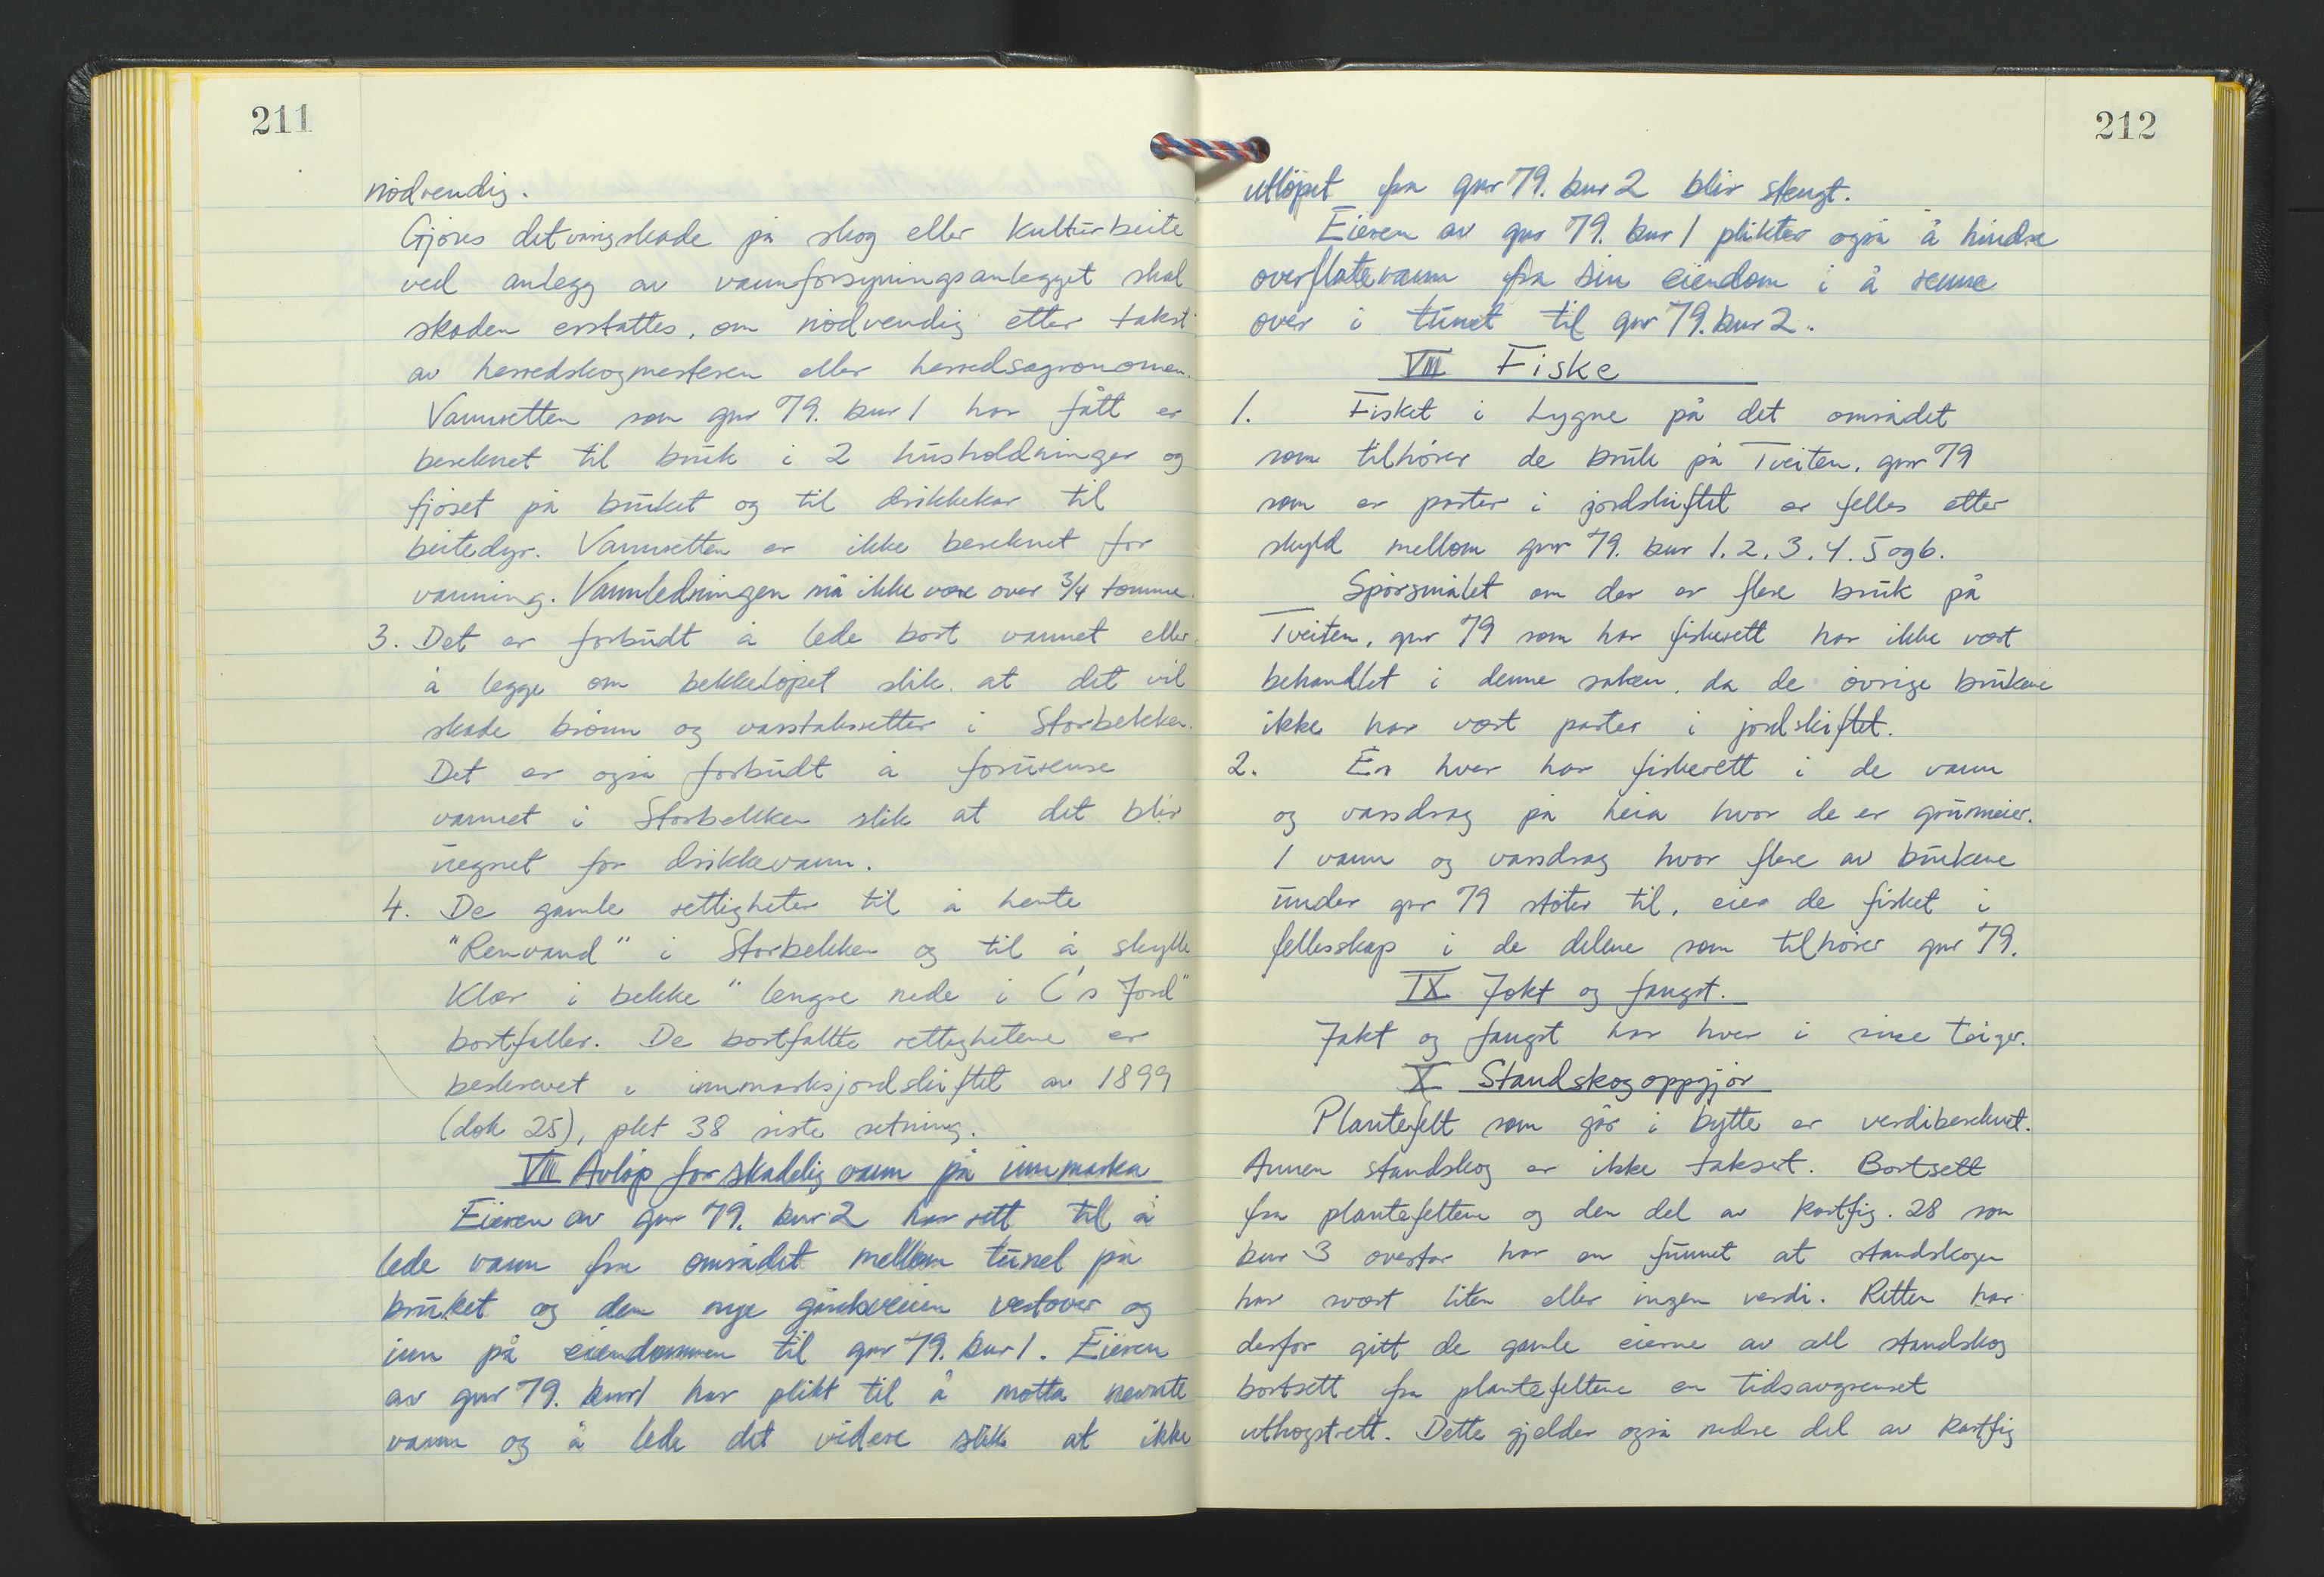 211
nødvendig.
Gjøres det varig skade på skog eller kulturbeite
ved anlegg av vannforsyningsanlegget skal
skaden erstattes, om nødvendig etter takst
av herredskogmesteren eller herredsagronomen.
Vannretten som gnr 79. bnr 1 har fått er
bereknet til bruk i 2 husholdninger og
fjøset på bruket og til drikkekar til
beitedyr. Vannretten er ikke bereknet for
vanning. Vannledningen må ikke være over 3/4 tomme.
3. Det er forbudt å lede bort vannet eller
å legge om bekkeløpet slik at det vil
skade brønn og vasstaksretter i Storbekken.
Det er også forbudt å forurense
vannet i Storbekken slik at det blir
uegnet for drikkevann.
4. De gamle rettigheter til å hente
"Renvand" i Storbekken og til å skylle
Klær i bekke "lengre nede i C's Jord"
bortfaller. De bortfallte rettighetene er
beskrevet i innmarksjordskiftet av 1899
(dok 25), pkt 38 siste setning.
VII Avløp for skadelig vann på innmarka
Eieren av gnr 79. bnr 2 har rett til å
lede vann fra området mellom tunet på
bruket og den nye gårdsveien vestover og
inn på eiendommen til gnr 79. bnr 1. Eieren
av gnr 79. bnr 1 har plikt til å motta nevnte
vann og å lede det videre slik at ikke
212
utløpet fra gnr 79. bnr 2 blir stengt.
Eieren av gnr 79. bnr 1 plikter også å hindre
overflatevann fra sin eiendom i å renne
over i tunet til gnr 79. bnr 2.
VIII Fiske
1. Fisket i Lygne på det området
som tilhører de bruk på Tveiten, gnr 79
som er parter i jordskiftet er felles etter
skyld mellom gnr 79. bnr 1. 2. 3. 4. 5 og 6.
Spørsmålet om der er flere bruk på
Tveiten, gnr 79 som har fiskerett har ikke vært
behandlet i denne saken, da de øvrige brukene
ikke har vært parter i jordskiftet.
2. En hver har fiskerett i de vann
og vassdrag på heia hvor de er grunneier.
I vann og vassdrag hvor flere av brukene
under gnr 79 støter til, eier de fisket i
fellesskap i de delene som tilhører gnr 79.
IX Jakt og fangst.
Jakt og fangst har hver i sine teiger.
X Standskogoppgjør
Plantefelt som går i bytte er verdibereknet.
Annen standskog er ikke taksert. Bortsett
fra plantefeltene og den del av kartfig. 28 som
bnr 3 overtar har en funnet at standskogen
har svært liten eller ingen verdi. Retten har
derfor gitt de gamle eierne av all standskog
bortsett fra plantefeltene en tidsavgrenset
uthogstrett. Dette gjelder også nedre del av kartfig